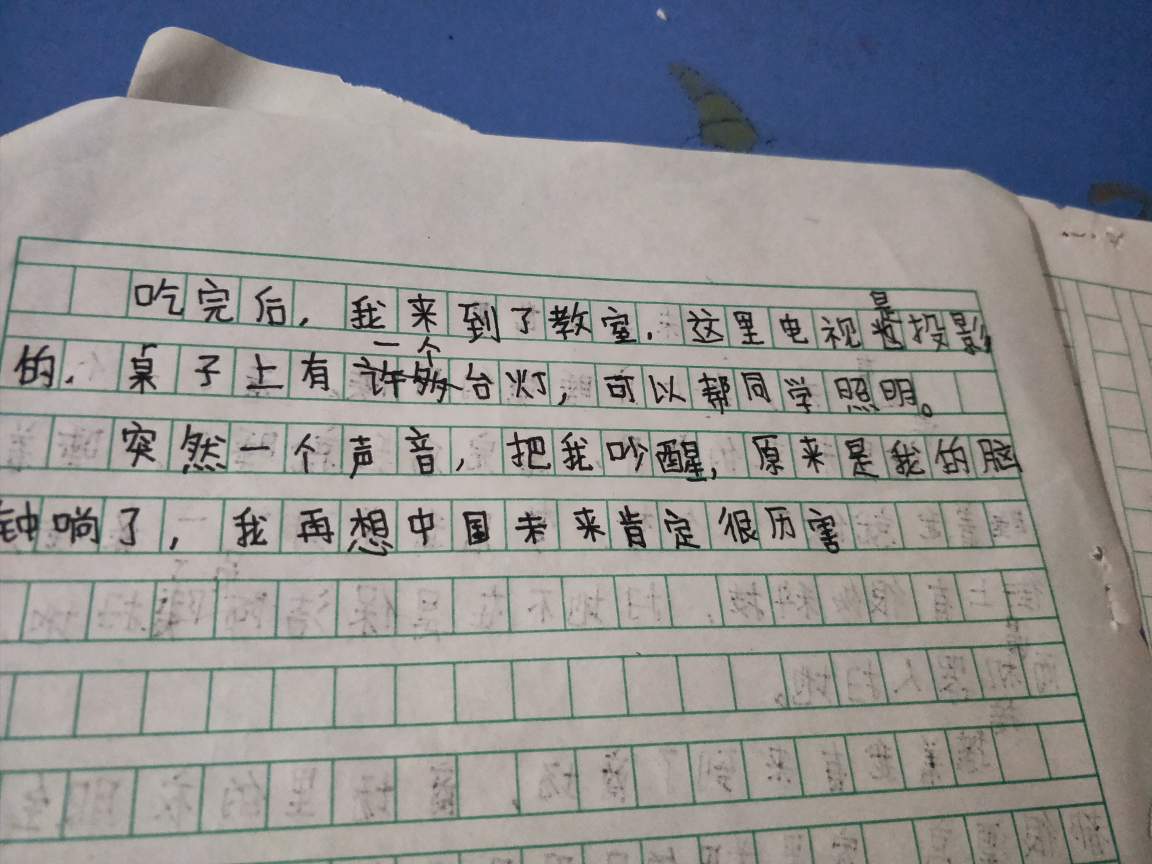 吃完后，我来到了教室．这里电视是投影
的．桌子上有一个台灯，可以帮同学照明。
突然一个声音，把我吵醒，原来是我的脑
钟响了，我再想中国未来肯定很历害